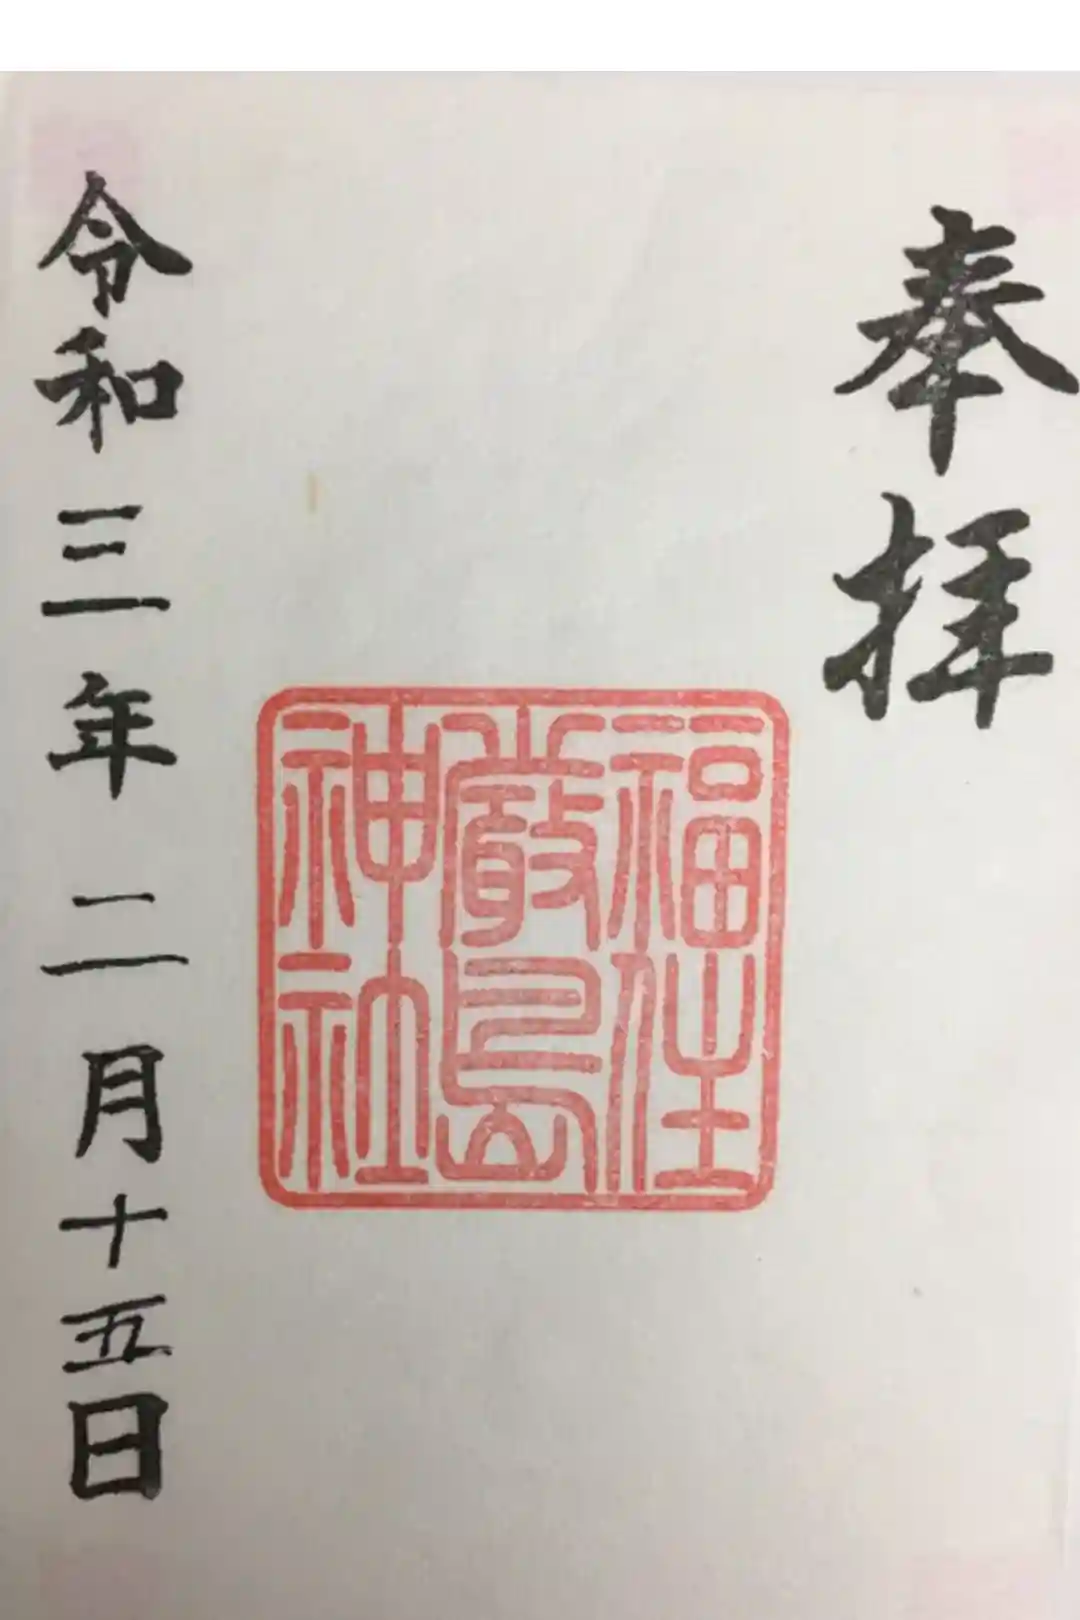 奉拝
福住
嚴島
神社
令和三年二月十五日